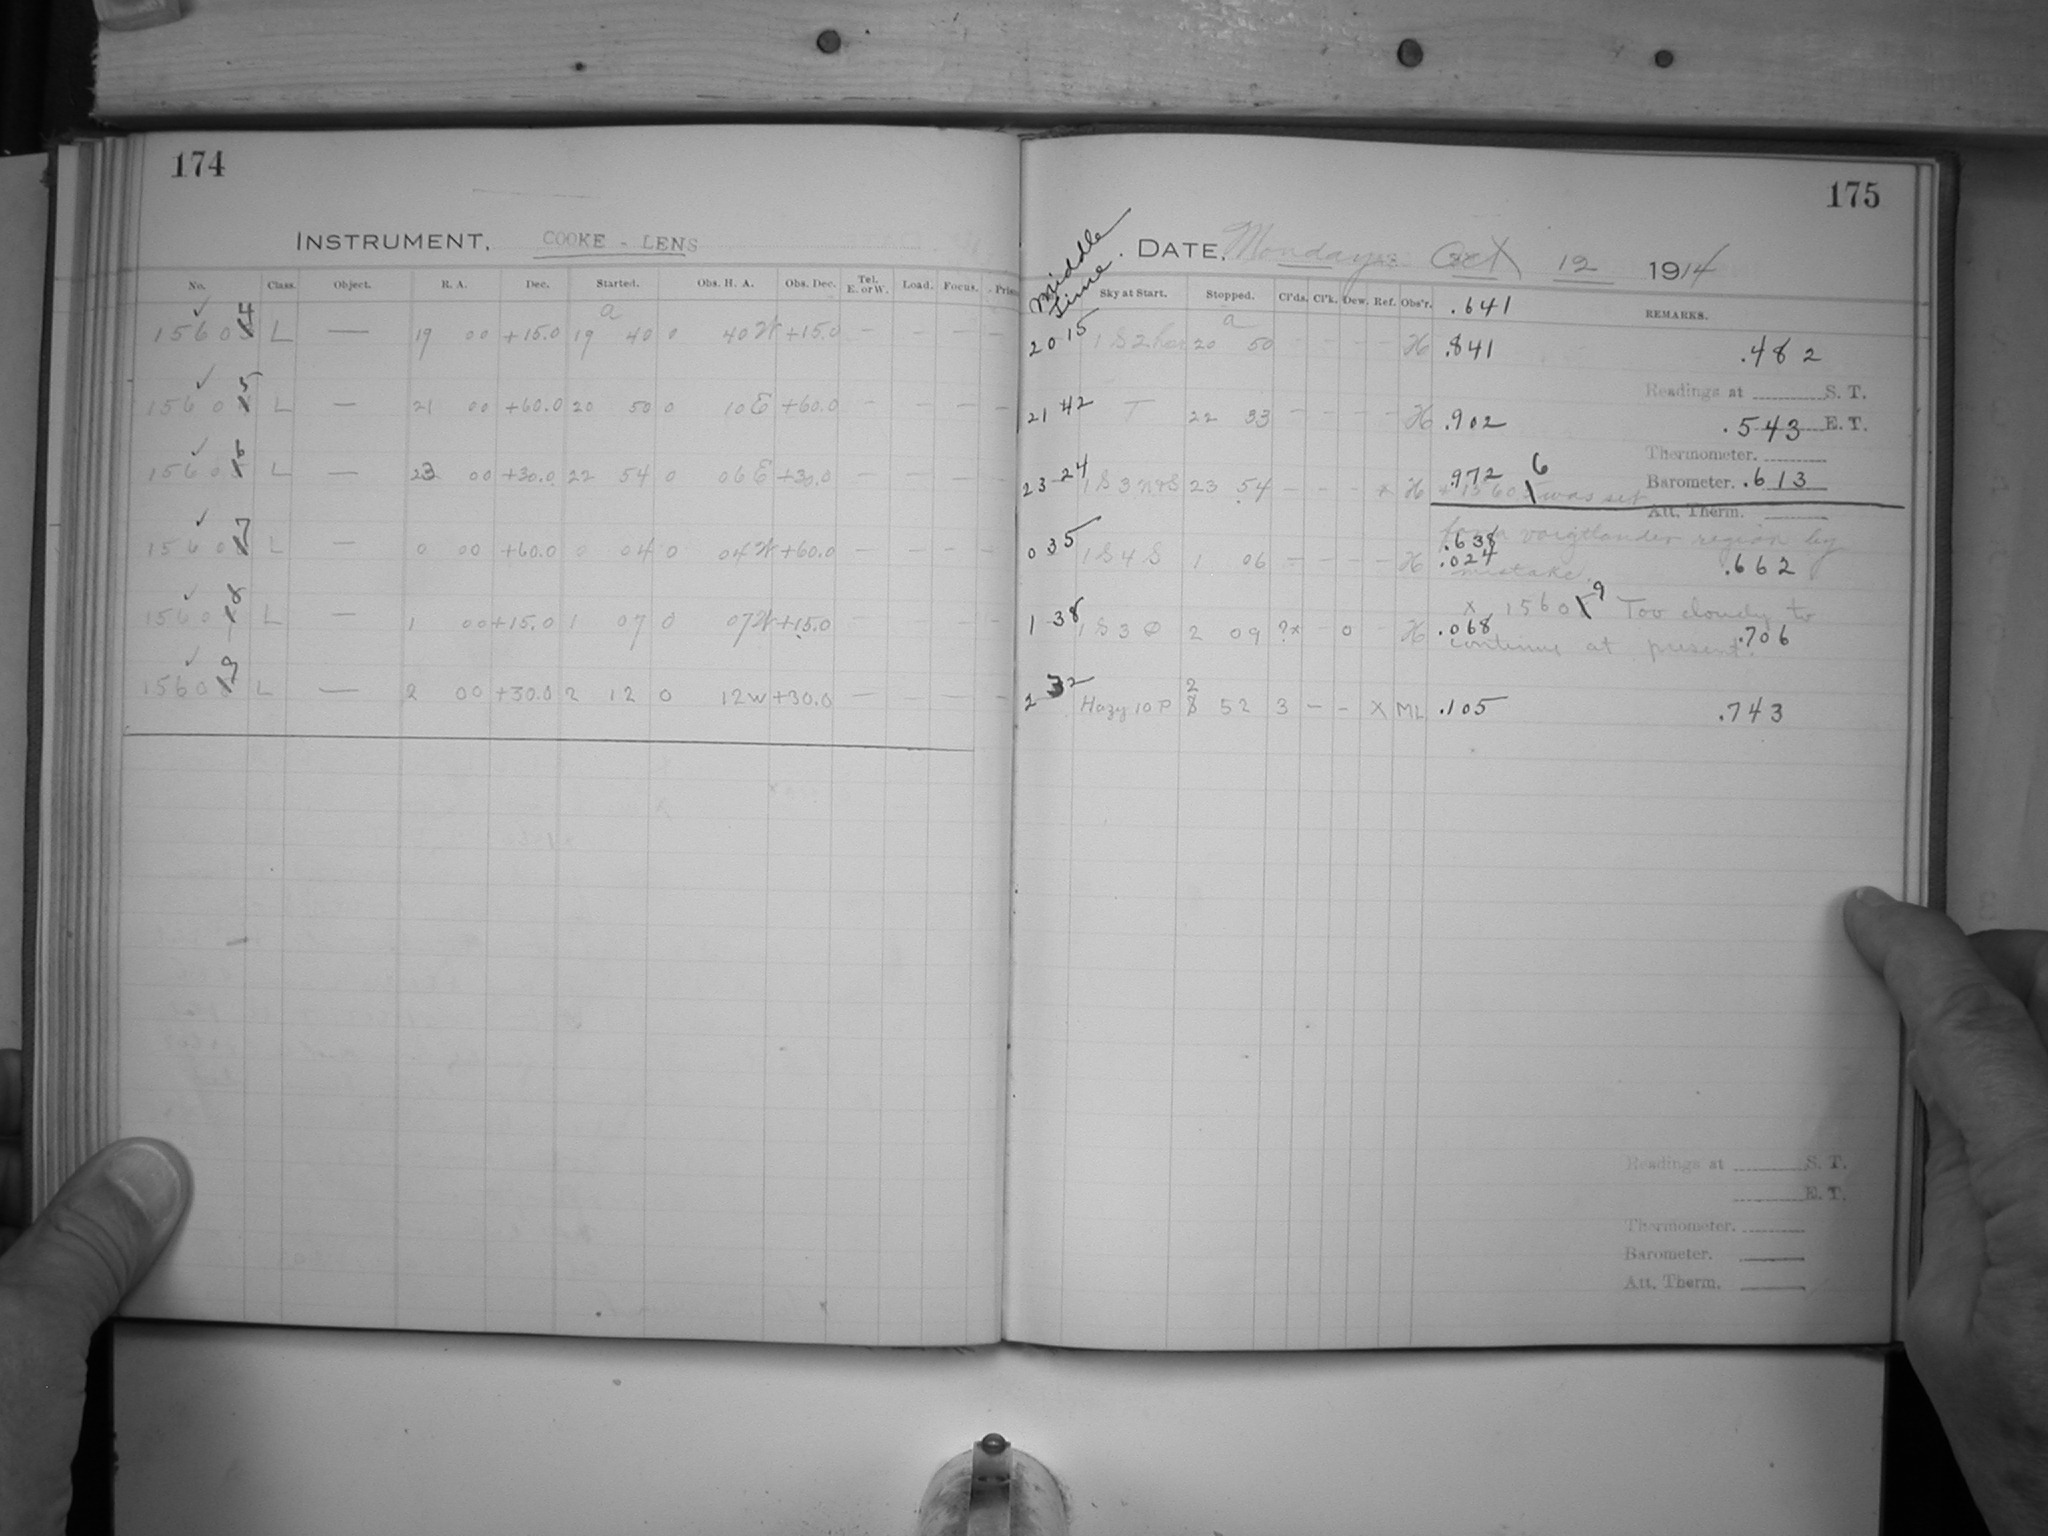 174
INSTRUMENT. COOKE - LENS
No. Class. Object. R. A. Dec. Started. Obs. H. A. Obs. Dec. Tel. E. or W. Load. Focus.
✓ 15604 L — 19 00 +15.0 19 a 40 0 40 W +15.0 — — — —
✓ 15605 L — 21 00 +60.0 20 50 0 10 E +60.0 — — — —
✓ 15606 L — 23 00 +30.0 22 54 0 06 E +30.0 — — — —
✓ 15607 L — 0 00 +60.0 0 04 0 04 W +60.0 — — — —
✓ 15608 L — 1 00 +15.0 1 07 0 07 W +15.0 — — — —
✓ 15609 L — 2 00 +30.0 2 12 0 12 W +30.0 — — — —
175
Middle Time. DATE. Monday Oct 12 1914
Sky at Start. Stopped. Cl'ds. Cl'k. Dew. Ref. Obs'r. .641 REMARKS.
20 15 1 S 2 20 a 50 - - - - H .841 .482
Readings at S. T.
21 42 T 22 33 - - - - H .902 .543 E. T.
Thermometer.
23 24 1 S 3 N+S 23 54 - - - x H .972 Barometer. .613
x 15606 was set
Att. Therm.
for a voigtlander region by
.638
0 35 1 S 4 S 1 06 - - - - H .024 .662
mistake.
x 15609 Too cloudy to
1 38 1 S 3 2 09 ?x - 0 - H .068 .706
continue at present.
2 32 Hazy 10 P 2 52 3 - - X ML .105 .743
Readings at S. T.
E. T.
Thermometer.
Barometer.
Att. Therm.